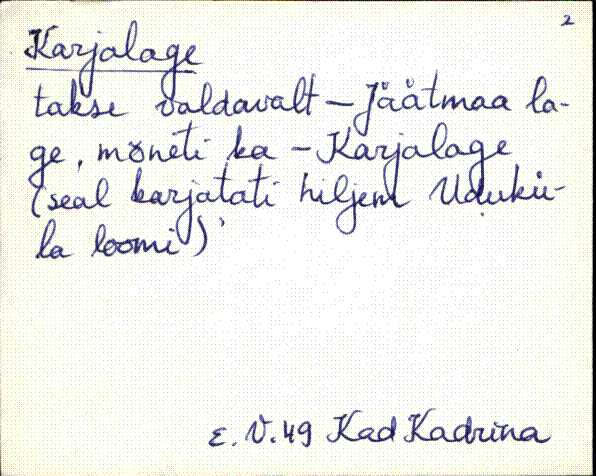 2
Karjalage
takse valdavalt – Jäätmaa la-
ge, mõneti ka – Karjalage
(seal karjatati hiljem Udukü-
la loomi)
E. V. 49 Kad Kadrina